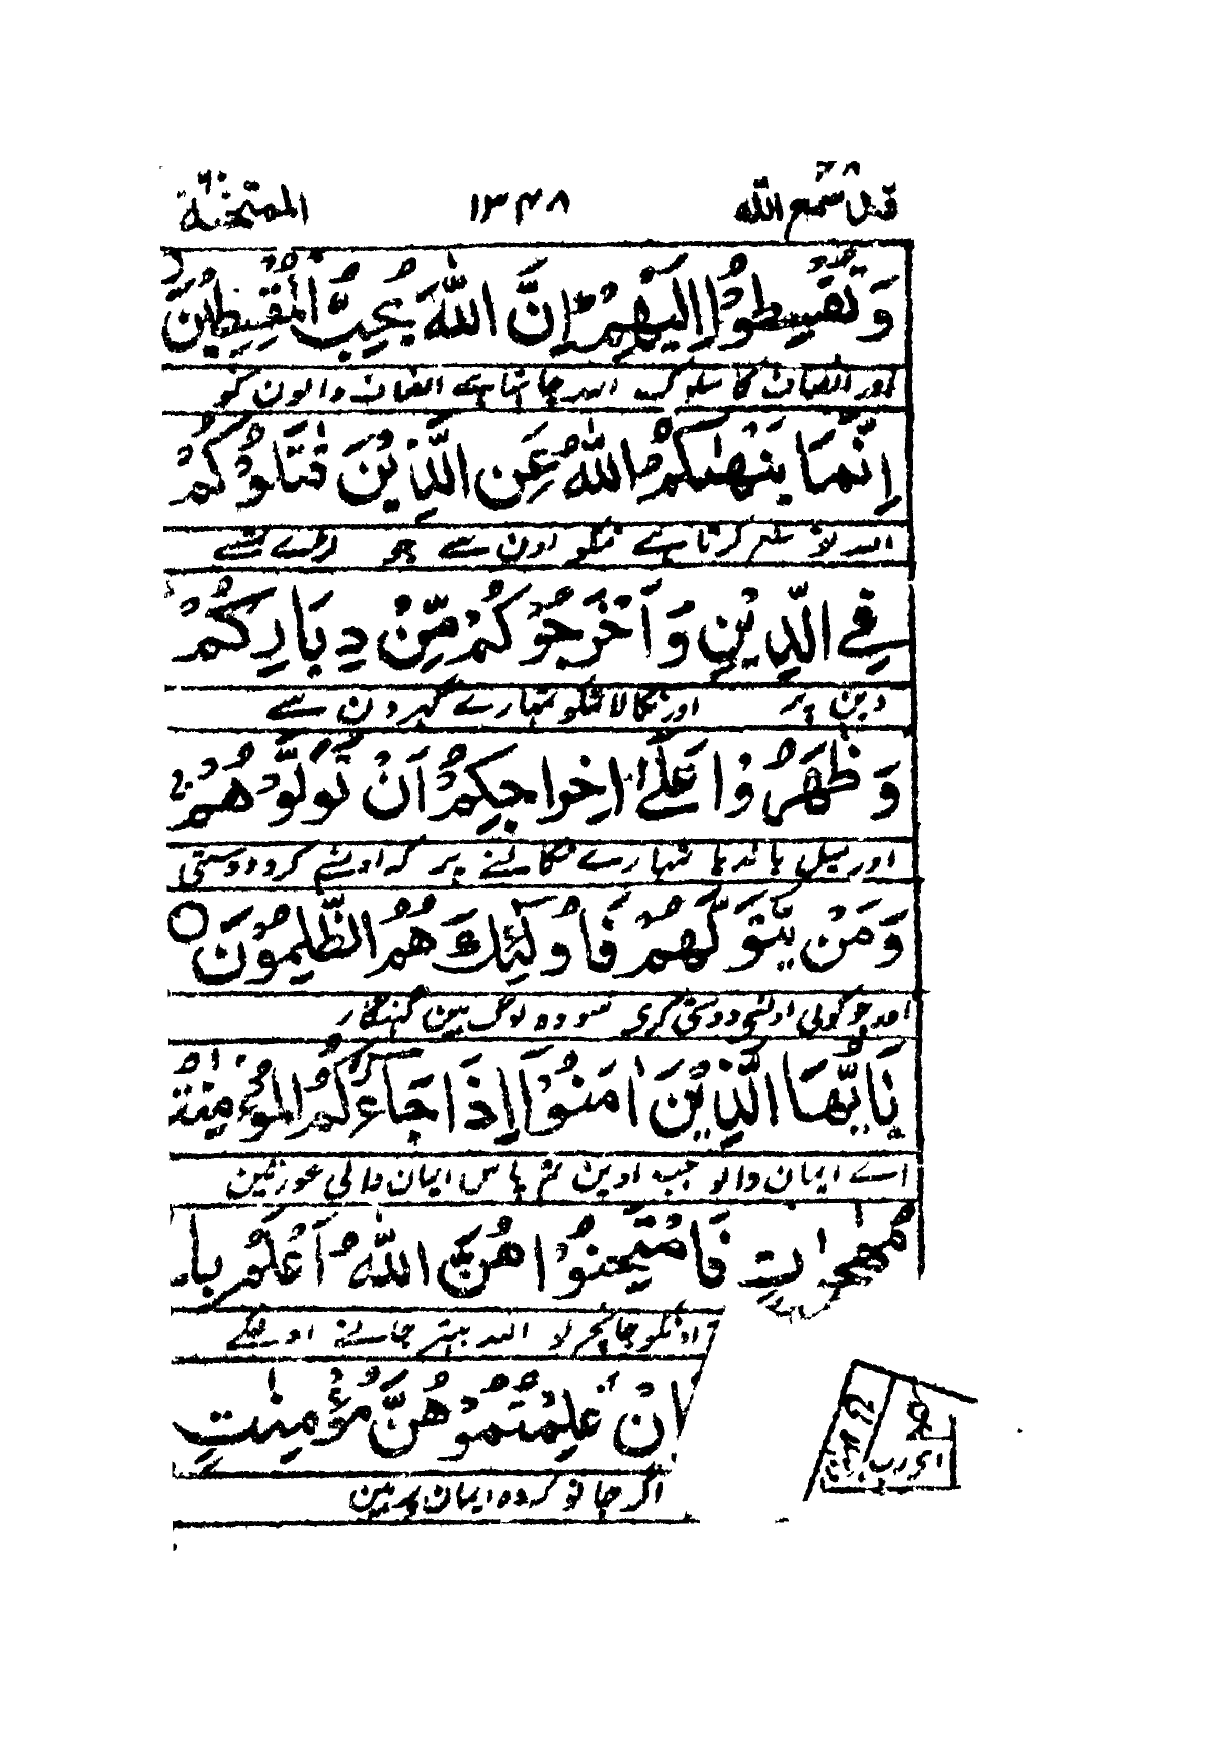 قد سمع الله ۲۸ ۱۳۴۸ الممتحنة ۶۰
وَتُقْسِطُوْۤا اِلَيْهِمْ ؕ اِنَّ اللّٰهَ يُحِبُّ الْمُقْسِطِيْنَ
اور انصاف کا سلوک اللہ چاہتا ہے انصاف والون کو
اِنَّمَا يَنْهٰىكُمُ اللّٰهُ عَنِ الَّذِيْنَ قٰتَلُوْكُمْ
اللہ تو منع کرتا ہے تمکو اون سے جو لڑے تمسے
فِي الدِّيْنِ وَاَخْرَجُوْكُمْ مِّنْ دِيَارِكُمْ
دین پر اور نکالا تمکو تمہارے گہرون سے
وَظٰهَرُوْا عَلٰۤى اِخْرَاجِكُمْ اَنْ تَوَلَّوْهُمْ ۚ
اور میل باندہا تمہارے نکالنے پر کہ اونسے کرو دوستی
وَمَنْ يَّتَوَلَّهُمْ فَاُولٰٓئِكَ هُمُ الظّٰلِمُوْنَ ○
اور جو کوئی اونسے دوستی کری سو وہ لوگ ہین گنہگار
يٰۤاَيُّهَا الَّذِيْنَ اٰمَنُوْۤا اِذَا جَآءَكُمُ الْمُؤْمِنٰتُ
اے ایمان والو جب اوین تم پاس ایمان والی عورتین
مُهٰجِرٰتٍ فَامْتَحِنُوْهُنَّ ؕ اَللّٰهُ اَعْلَمُ بِاِ
اونکو جانچ لو اللہ بہتر جانے اونکے
اِنْ عَلِمْتُمُوْهُنَّ مُؤْمِنٰتٍ
اگر جانو کہ وہ ایمان پر ہین